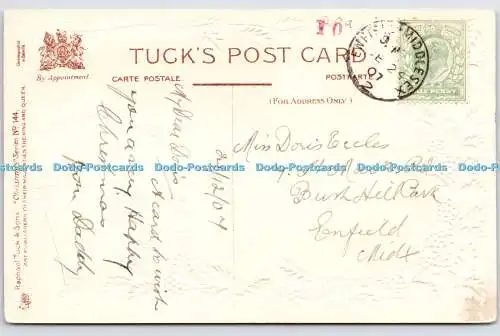 TUCK'S POST CARD
By Appointment.
CARTE POSTALE.
POSTKARTE
(FOR ADDRESS ONLY)
ENFIELD MIDDLESEX
24
07
Raphael Tuck & Sons
Series No 144.
ART PUBLISHERS TO THEIR MAJESTIES THE KING AND QUEEN.
24/12/07
My Dear Doris
A card to wish
you a very Happy
Christmas
from Daddy
Miss Doris Eccles
Bush Hill Park
Enfield
Midx
Dodo-Postcards Dodo-Postcards Dodo-Postcards Dodo-Postcards Dodo-Postcards